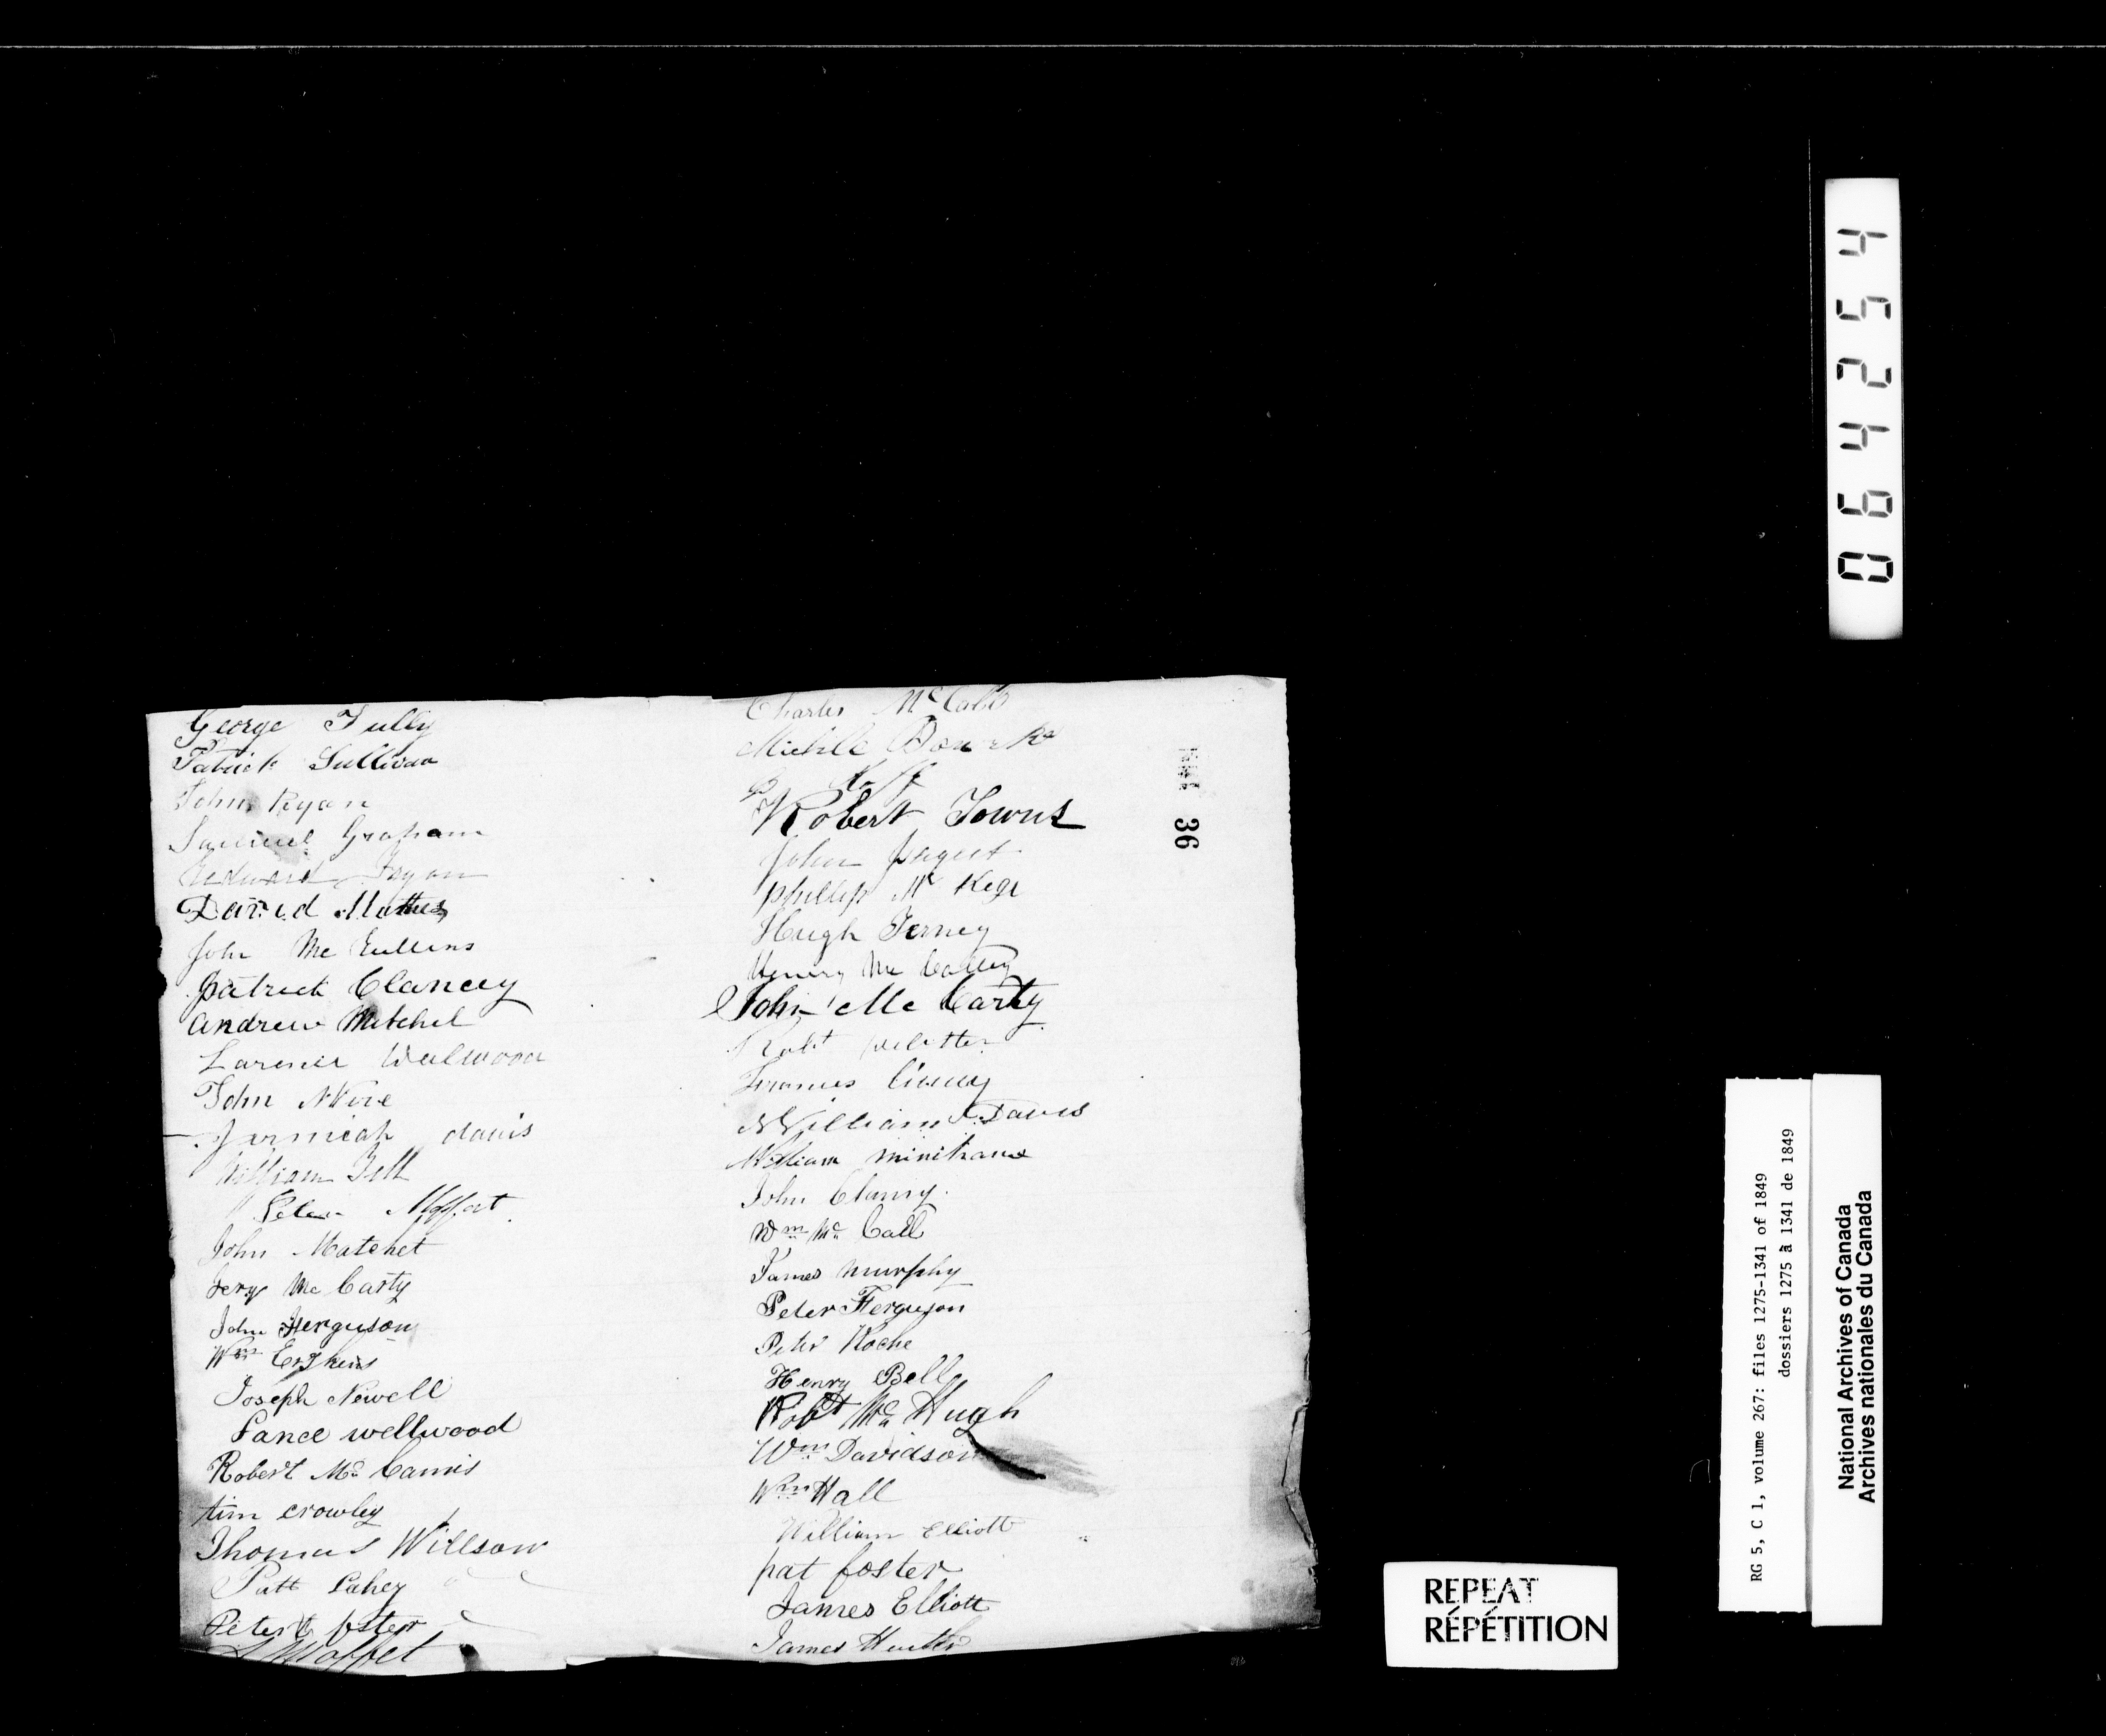 George Tully
Patrick Sullivan
John Ryan
Samuel Graham
David Mathes
John Mc
Patrick Clancey
Andrew Mitchel
Larence Wellwood
John
Jermiah davis
William Tell
Peter Moffat
John Matchet
Jery Mc Carty
John Ferguson
Wm Erskins
Joseph Newell
Lance wellwood
Robert Mc Camis
tim crowley
Thomas Willson
Patt Lahey
Peter foster
Moffet
Charles McCabe
Michile
Robert Towns
John
Phillip Mc
Hugh Terney
Henry Mc
John Mc Carty
Robt
William Davis
William minihane
John Clancy
Wm Mc Call
James Murphy
Peter Ferguson
Peter Roche
Henry Bell
Robt Mc Hugh
Wm Davidson
Wm Hall
William Elliott
pat foster
James Elliott
James
36
064254
RG 5, C 1, volume 267: files 1275-1341 of 1849
dossiers 1275 à 1341 de 1849
National Archives of Canada
Archives nationales du Canada
REPEAT
RÉPÉTITION